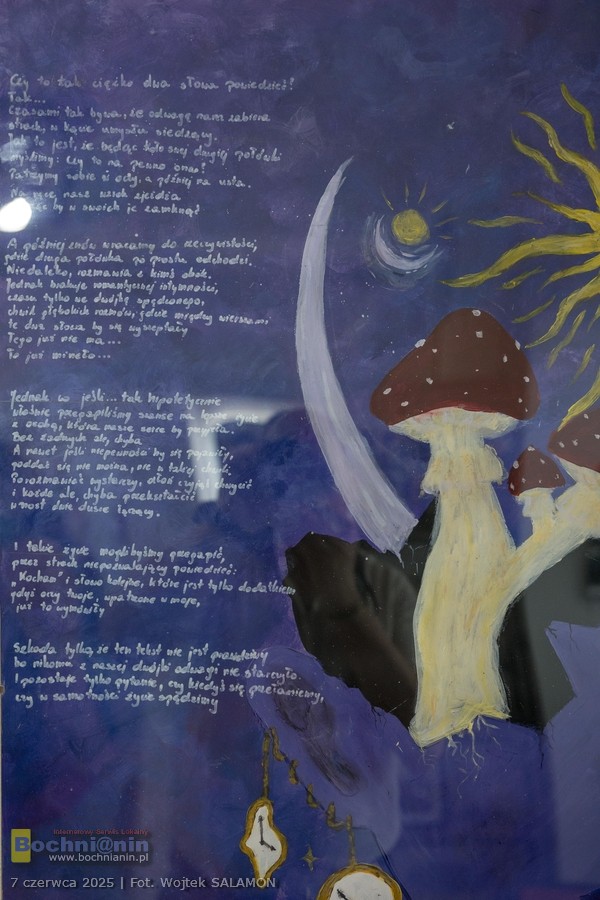 Czy to tak ciężko dwa słowa powiedzieć?
Tak...
Czasami tak bywa, że odwagę nam zabiera
strach, w kącie umysłu siedzący.
Jak to jest, że będąc koło swej drugiej połówki
myślimy: Czy to na pewno ona?
Patrzymy sobie w oczy, a później na usta.
Na ręce nasz wzrok zjeżdża
by w swoich je zamknąć
A później znów wracamy do rzeczywistości,
gdzie druga połówka po prostu odchodzi.
Niedaleko, rozmawia z kimś obok.
Jednak brakuje romantycznej intymności,
czasu tylko we dwójkę spędzonego,
chwil głębokich rozmów, gdzie między wierszami
te dwa słowa by się wyszeptały
Tego już nie ma...
To już minęło...
Jednak co jeśli... tak hipotetycznie
właśnie przegapiliśmy szansę na życie
z osobą, którą nasze serce by przyjęło.
Bez żadnych ale, chyba
A nawet jeśli niepewności by się pojawiły,
poddać się nie można, nie w takiej chwili.
Porozmawiać wystarczy, dłoń czyjąś chwycić
i każde ale, chyba przekształcić
w most dwie dusze łączący.
I takie życie moglibyśmy przegapić,
przez strach niepozwalający powiedzieć:
„Kocham” i słowo kolejne, które jest tylko dodatkiem
gdyż oczy twoje, wpatrzone w moje,
już to wymówiły
Szkoda tylko, że ten tekst nie jest prawdziwy
bo nikomu z naszej dwójki odwagi nie starczyło.
I pozostaje tylko pytanie, czy kiedyś się przełamiemy,
czy w samotności życie spędzimy
Internetowy Serwis Lokalny
Bochni@nin
www.bochnianin.pl
7 czerwca 2025 | Fot. Wojtek SALAMON